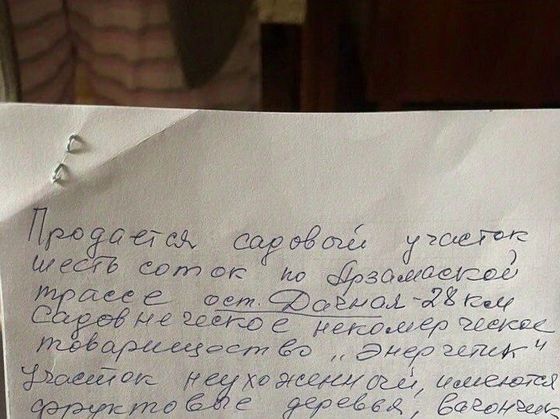 Продаётся садовый участок
шесть соток по Арзамаской
трассе ост. Дачная-28км
Садовнеческое некомерческое
товарищество „Энергетик"
Участок неухоженный, имеются
фруктовые деревья, вагончик